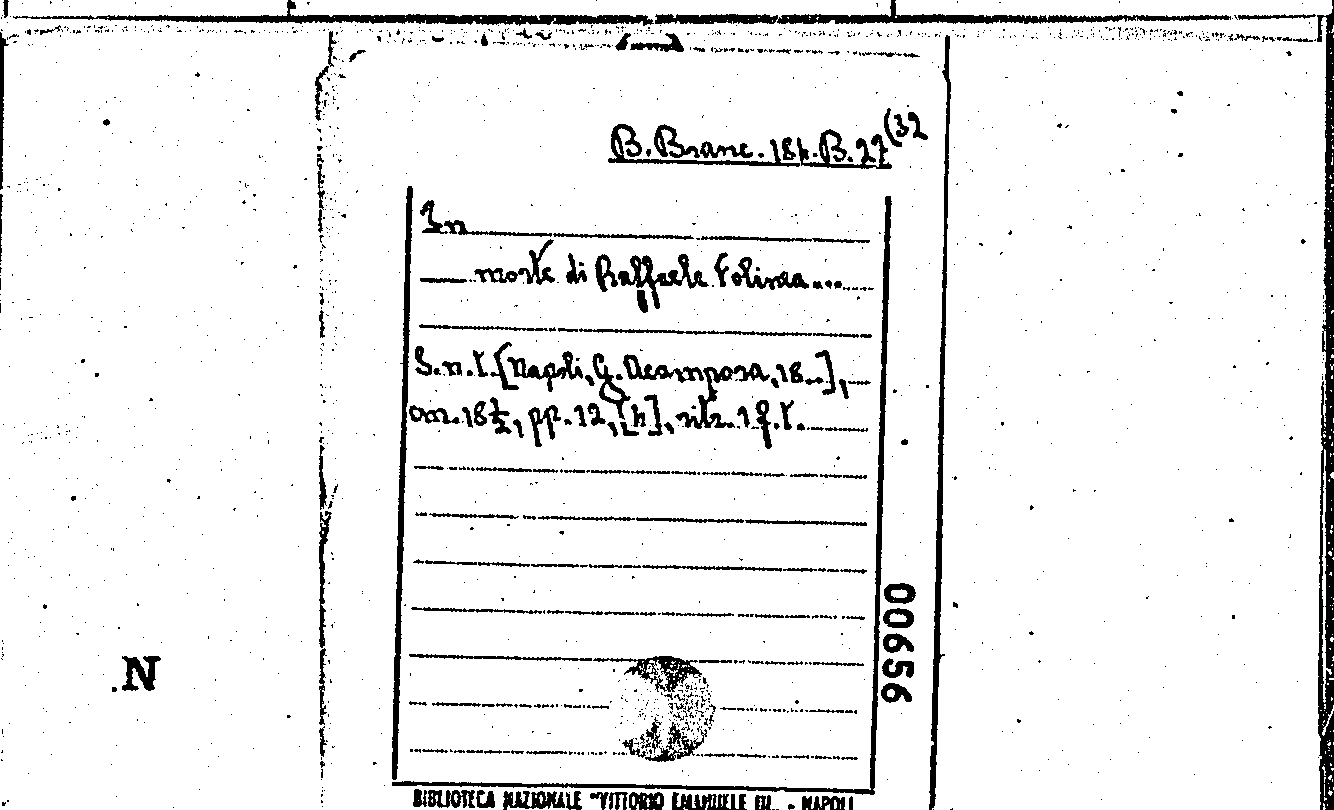 B. Branc. 184. B. 27(32
In
morte di Raffaele Folinea...
S.n.t. [Napoli, G. Acampora, 18..],
cm. 18½, pp. 12, [4], ritr. 1 f.t.
00656
.N
BIBLIOTECA NAZIONALE "VITTORIO EMANUELE III„ - NAPOLI